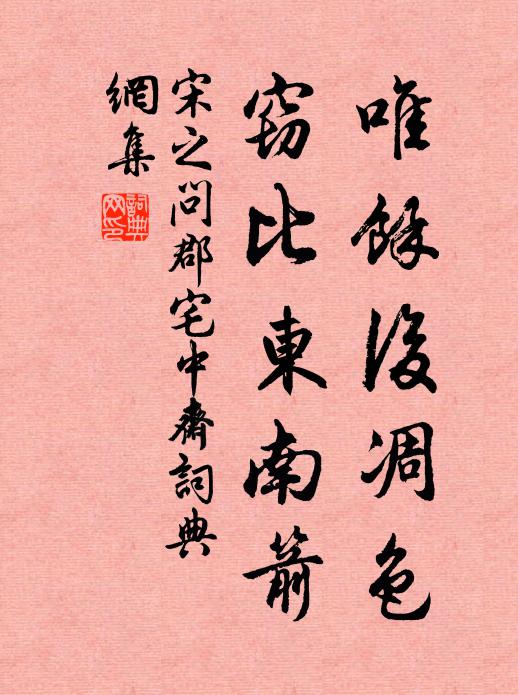 唯餘後凋色
窃比東南箭
宋之问郡宅中齋詞典
網集
詞典
网印